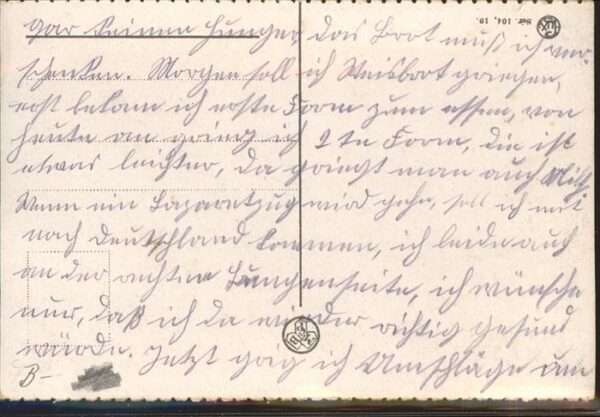 gar keinen Hunger, das Brot muß ich ver-
schenken. Morgen soll ich Weisbort griegen,
erst bekam ich erste Form zum essen, von
heute an grieg ich 2te Form, die ist
etwas leichter, da griegt man auch
Wenn ein Lazaretzug wird gehn, soll ich mit
nach Deutschland kommen, ich leide auch
an der rechten Lungenseite, ich wünsche
nur, daß ich da wieder richtig gesund
würde. Jetzt grig ich Umschläge um
B-
Ser. 104, 18.